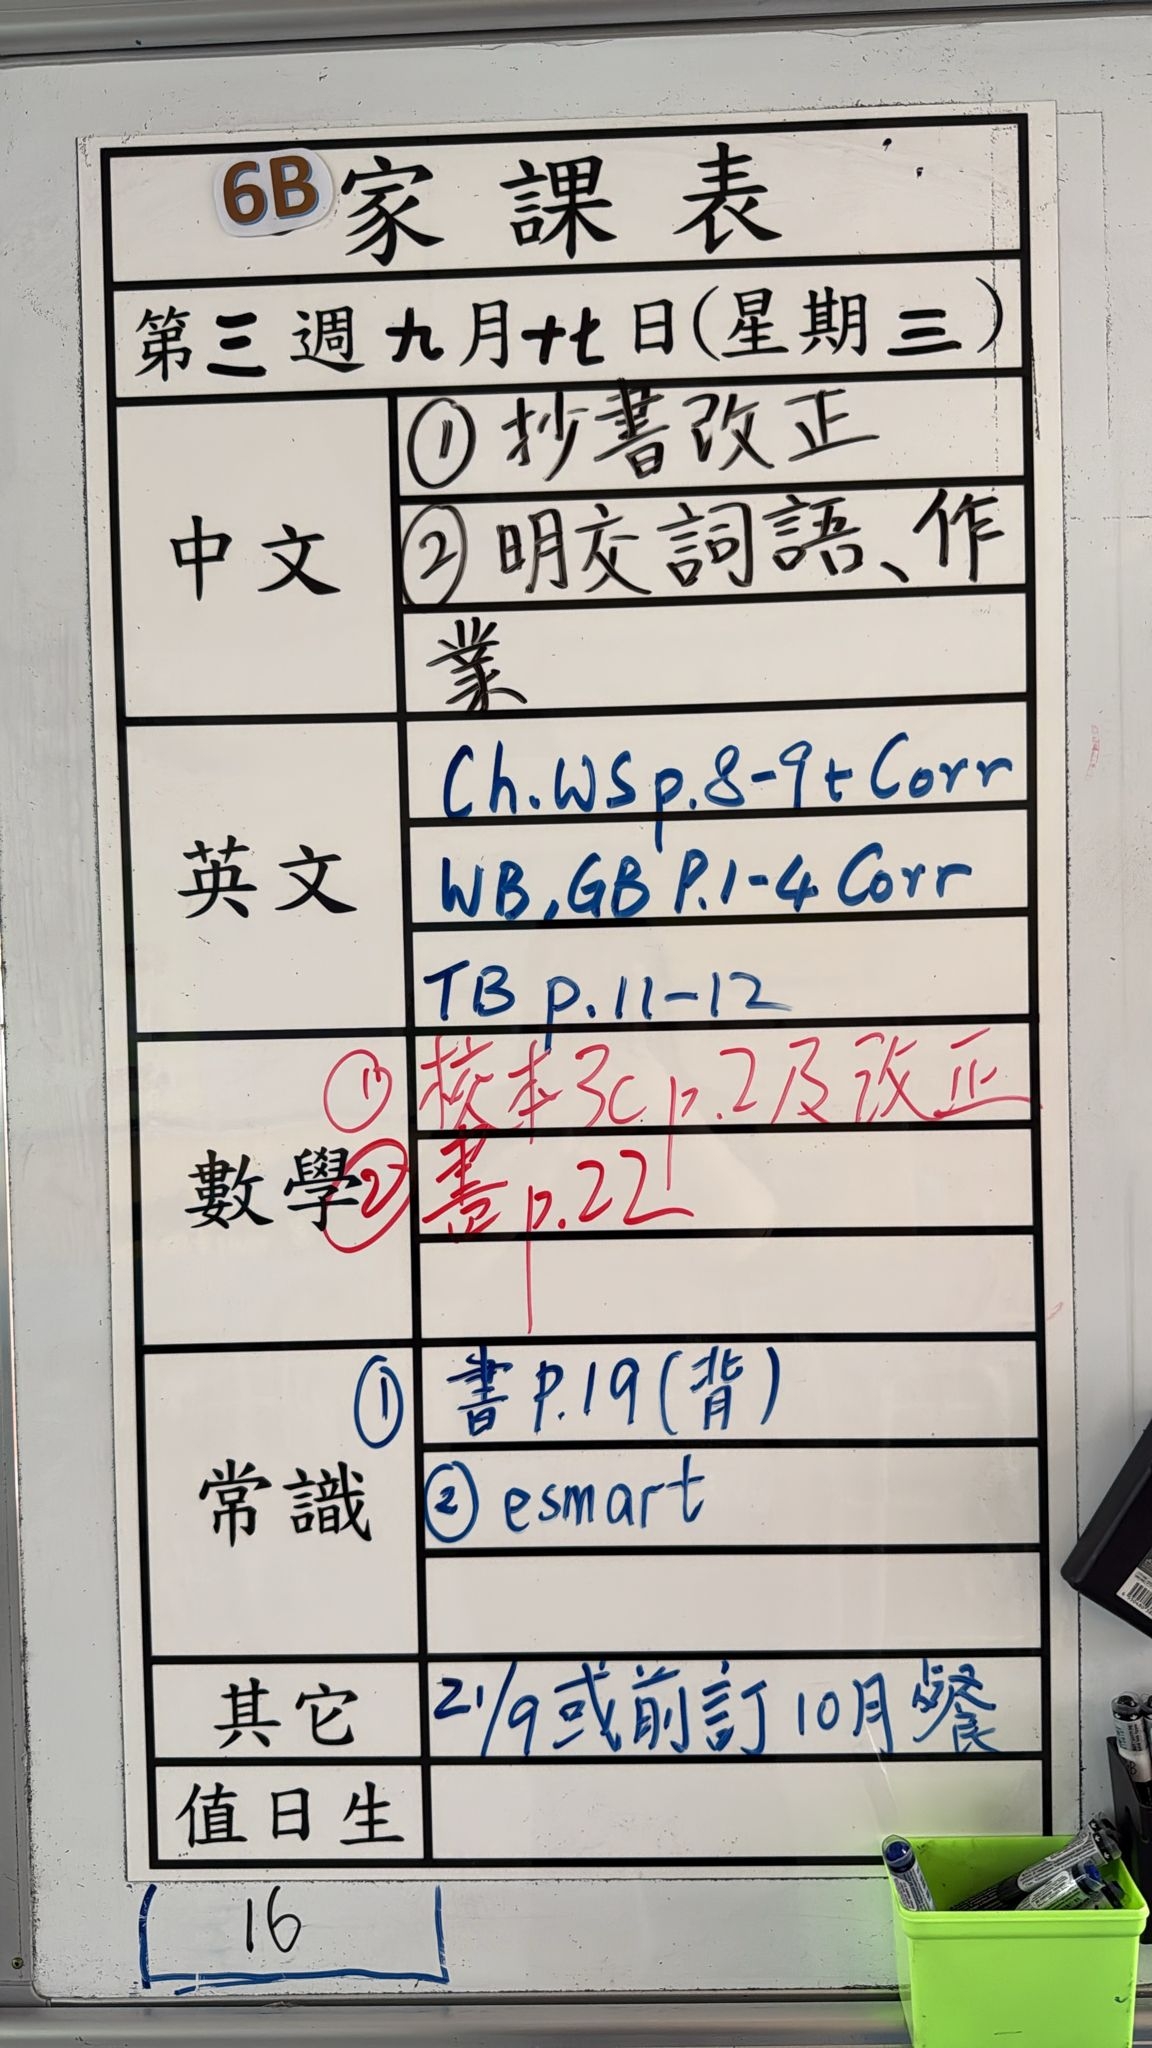 6B 家課表
第三週九月十七日(星期三)
中文
① 抄書改正
② 明交詞語、作
業
英文
Ch.WS p.8-9 + Corr
WB, GB P.1-4 Corr
TB p.11-12
數學
① 校本3C p.2及改正
② 書p.22
常識
① 書P.19(背)
② esmart
其它
21/9或前訂10月餐
值日生
16